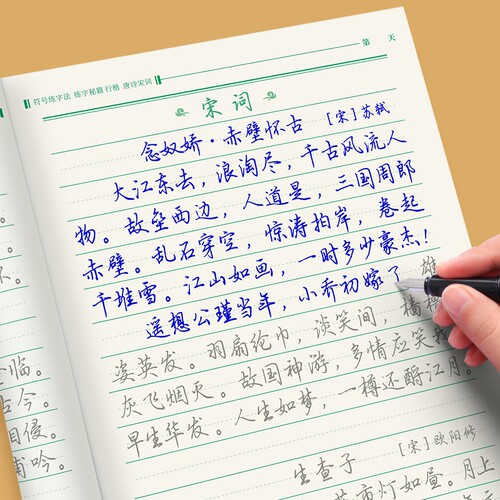 符号练字法 练字秘籍 行楷 唐诗宋词
第 天
宋词
念奴娇·赤壁怀古 [宋]苏轼
大江东去，浪淘尽，千古风流人
物。故垒西边，人道是，三国周郎
赤壁。乱石穿空，惊涛拍岸，卷起
千堆雪。江山如画，一时多少豪杰！
遥想公瑾当年，小乔初嫁了，雄
姿英发。羽扇纶巾，谈笑间，樯
灰飞烟灭。故国神游，多情应笑我
早生华发。人生如梦，一樽还酹江月。
生查子 [宋]欧阳修
市灯如昼。月上
临。
古今。
相侵。
甫吟。